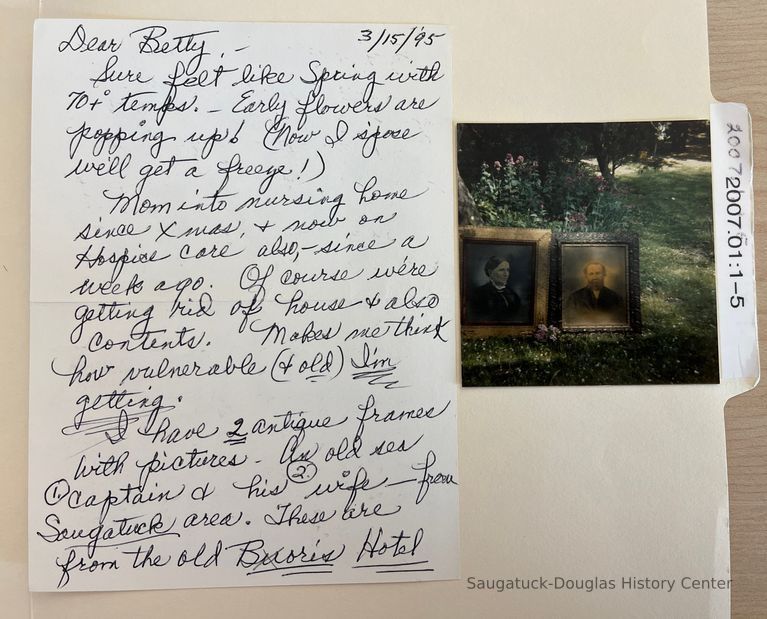 Dear Betty, - 3/15/95
Sure felt like Spring with
70+° temps. - Early flowers are
popping up! (Now I spose
we'll get a freeze!)
Mom into nursing home
since Xmas, & now on
Hospice care also, - since a
week ago. Of course we're
getting rid of house & also
contents. Makes me think
how vulnerable (& old) I'm
getting.
I have 2 antique frames
with pictures - An old sea
① captain & his ② wife - from
Saugatuck area. These are
from the old Hotel
2007
2007.01:1-5
Saugatuck-Douglas History Center